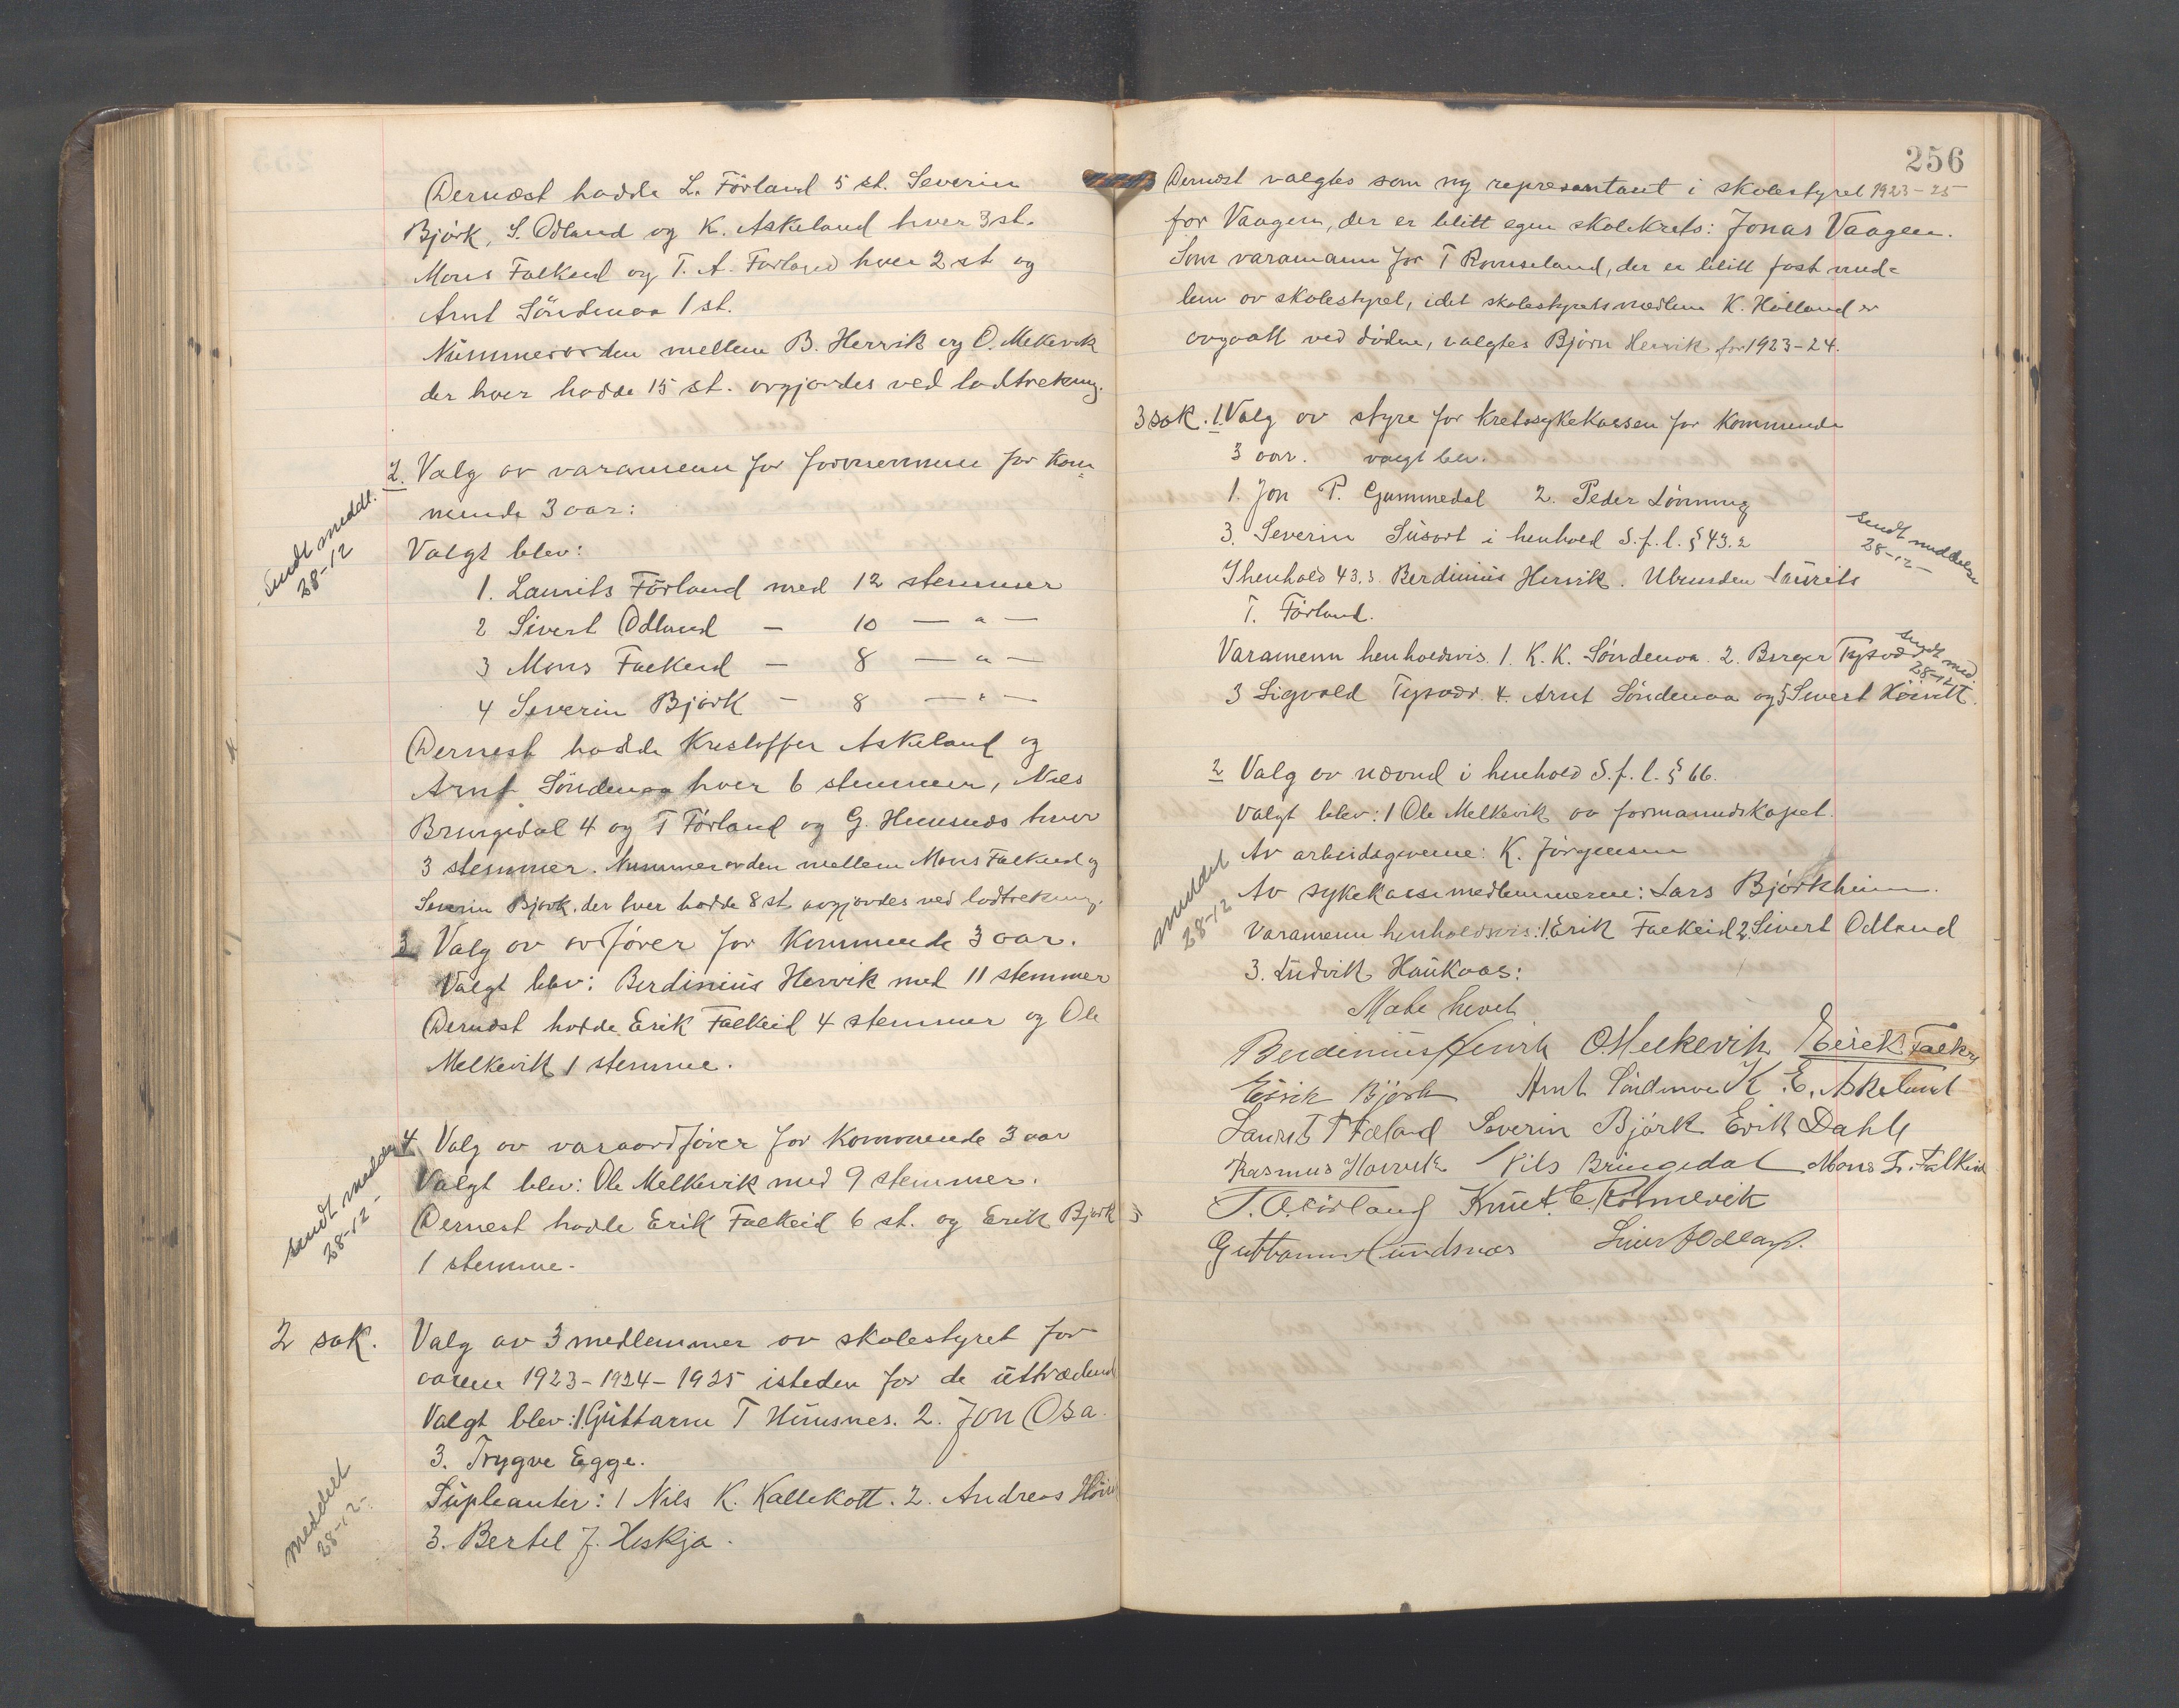 Dernæst hadde L. Förland 5 st. Severin
Björk, S. Odland og K. Askeland hver 3 st.
Mons Falkeid og T. A. Førland hver 2 st og
Arnt Söndenaa 1 st.
Nummerorden mellem B. Hervik og O. Melkevik
der hver hadde 15 st. avgjordes ved lodtrekning.
2. Valg av varamenn for formennene for kom-
mende 3 aar:
Sendt meddl.
28-12
Valgt blev:
1. Laurits Förland med 12 stemmer
2 Sivert Odland — 10 — " —
3 Mons Falkeid — 8 — " —
4 Severin Björk — 8 — " —
Dernest hadde Kristoffer Askeland og
Arnt Söndenaa hver 6 stemmer, Nils
Bringedal 4 og T Förland og G. Hunsnæs hver
3 stemmer. Nummerorden mellem Mons Falkeid og
Severin Bjork, der hver hadde 8 st. avgjordes ved lodtrekning.
3 Valg av ordfører for kommende 3 aar.
Valgt blev: Berdinius Hervik med 11 stemmer
Dernæst hadde Erik Falkeid 4 stemmer og Ole
Melkevik 1 stemme.
4. Valg av varaordfører for kommende 3 aar
Sendt meddel
28-12-
Valgt blev: Ole Melkevik med 9 stemmer.
Dernest hadde Erik Falkeid 6 st. og Erik Bjork
1 stemme.
2 sak. Valg av 3 medlemmer av skolestyret for
aarene 1923-1924-1925 isteden for de uttrædend
Valgt blev: 1. Guttorm T Hunsnes. 2. Jon Osa.
3. Trygve Egge.
Supleanter: 1 Nils K. Kallekott. 2. Andreas
3. Bertel J. Heskja.
meddelt
28-12-
256
Dernæst valgtes som ny representant i skolestyret 1923-25
for Vaagen, der er blitt egen skolekrets: Jonas Vaagen.
Som varamann for T Romseland, der er blitt fast med-
lem av skolestyret, idet skolestyretsmedlem K. Hålland er
avgaatt ved døden, valgtes Bjørn Hervik for 1923-24.
3 sak. 1. Valg av styre for kretssykekassen for kommende
3 aar. valgt blev.
1. Jon P. Gammedal 2. Peder Lönning
3. Severin Susort i henhold S.f.l. § 43.2
Sendt meddelse
28-12-
I henhold 43.3. Berdinius Hervik. Ubunden Laurits
T. Förland.
Varamenn henholdsvis. 1. K. K. Söndenaa. 2. Berger Tysvær
Sendt med.
28-12
3 Sigvald Tysvær. 4. Arnt Söndenaa og 5 Sivert
2 Valg av nævnd i henhold S.f.l. § 66.
Valgt blev: 1 Ole Melkevik av formannskapet.
Av arbeidsgiverne: K. Jörgensen
Av sykekassemedlemmerne: Lars Björkheim.
meddelt
28-12
Varamenn henholdsvis: 1. Erik Falkeid 2. Sivert Odland
3. Ludvik Haukaas:
Møte hevet
Berdinius Hervik O. Melkevik Eirek Falkei
Eirik Björk Arnt Söndenaa K. E. Askeland
Laurits T Førland Severin Björk Erik Dahle
Rasmus Hervik Nils Bringedal Mons Falkeid
T. A. Førland Knut E.
Guttorm Hundsnæs Sivert Odland.